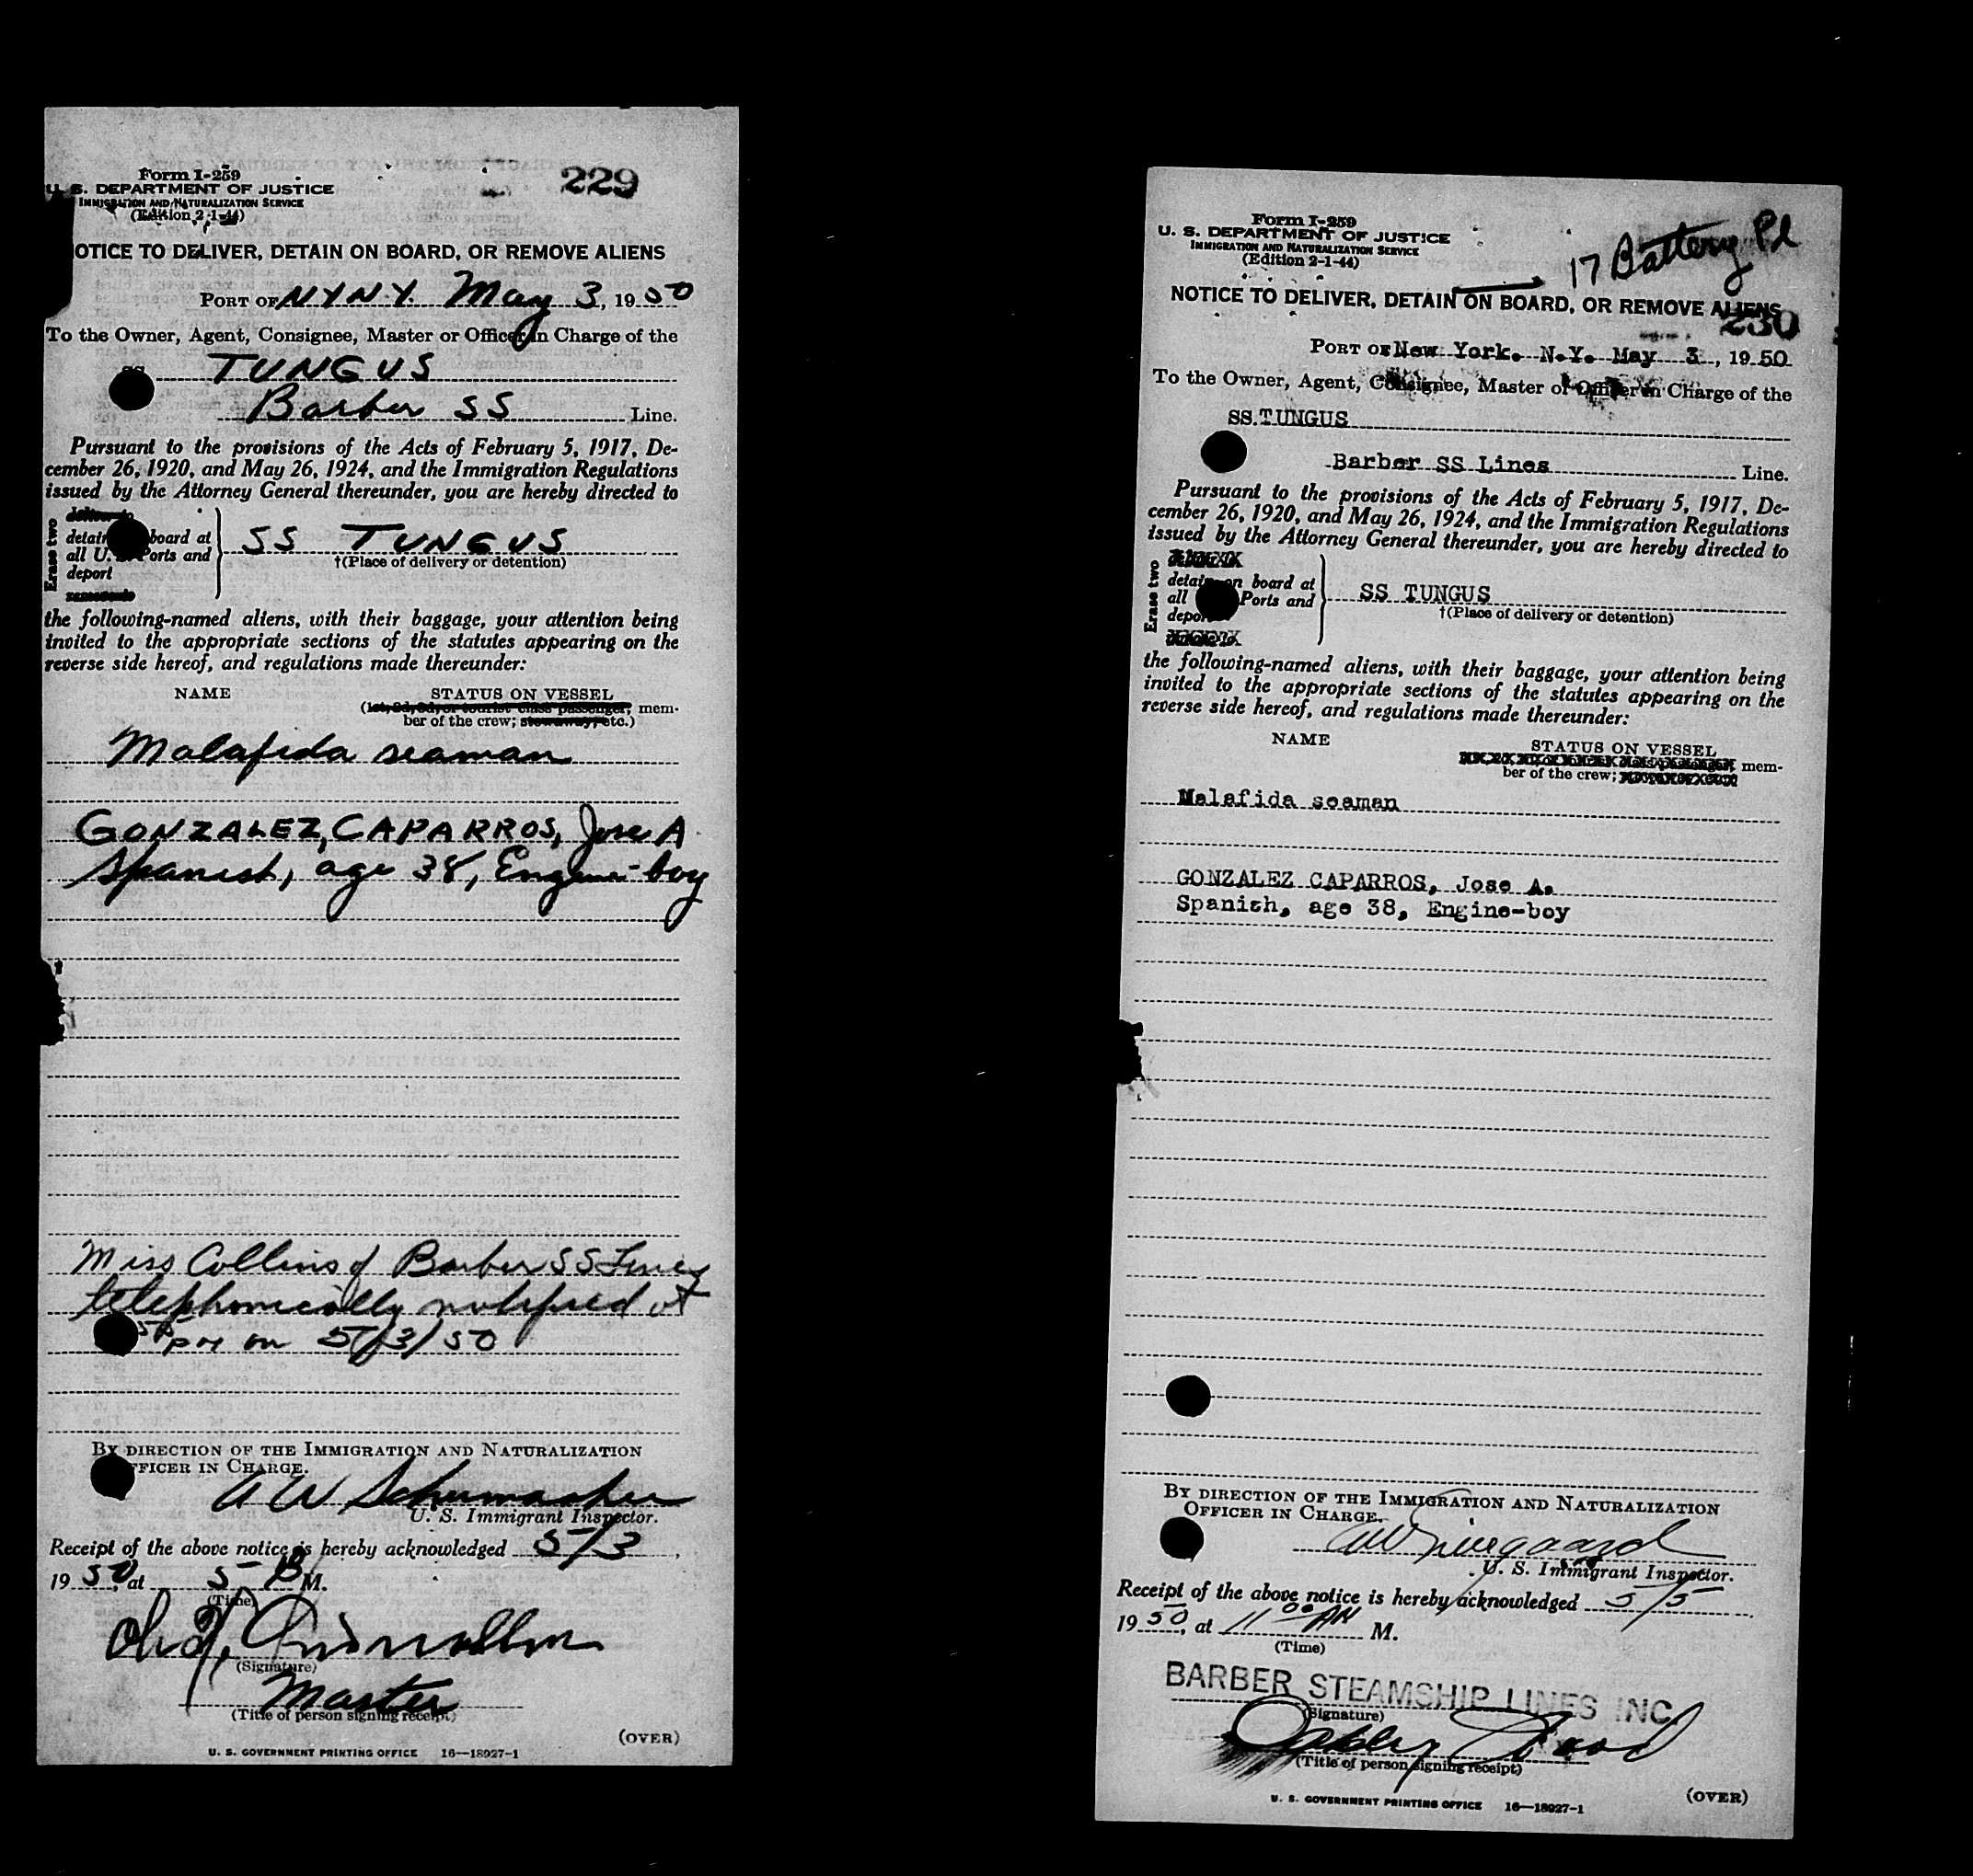 Form I-259
U. S. DEPARTMENT OF JUSTICE
IMMIGRATION AND NATURALIZATION SERVICE
(Edition 2-1-44)
229
OTICE TO DELIVER, DETAIN ON BOARD, OR REMOVE ALIENS
PORT OF N.Y.N.Y. May 3, 1950
To the Owner, Agent, Consignee, Master or Officer in Charge of the
SS TUNGUS
Barber SS Line.
Pursuant to the provisions of the Acts of February 5, 1917, De-
cember 26, 1920, and May 26, 1924, and the Immigration Regulations
issued by the Attorney General thereunder, you are hereby directed to
Erase two
deliver to
detain board at
all U. Ports and
deport
SS TUNGUS
†(Place of delivery or detention)
the following-named aliens, with their baggage, your attention being
invited to the appropriate sections of the statutes appearing on the
reverse side hereof, and regulations made thereunder:
NAME STATUS ON VESSEL
(1st, 2d, 3d, or tourist class passenger, mem-
ber of the crew; stowaway, etc.)
Malafida seaman
GONZALEZ, CAPARROS, Jose A
Spanish, age 38, Engine-boy
Miss Collins of Barber SS Lines
telephonically notified at
pm on 5/3/50
BY DIRECTION OF THE IMMIGRATION AND NATURALIZATION
FFICER IN CHARGE.
A W Schumacher
U. S. Immigrant Inspector.
Receipt of the above notice is hereby acknowledged 5/3,
1950, at 5 P M.
(Time)
(Signature)
Master
(Title of person signing receipt)
(OVER)
U. S. GOVERNMENT PRINTING OFFICE 16—18927-1
Form I-259
U. S. DEPARTMENT OF JUSTICE
IMMIGRATION AND NATURALIZATION SERVICE
(Edition 2-1-44)
17 Battery Pl
NOTICE TO DELIVER, DETAIN ON BOARD, OR REMOVE ALIENS
230
PORT OF New York, N.Y. May 3, 1950
To the Owner, Agent, Consignee, Master or Officer in Charge of the
SS TUNGUS
Barber SS Lines Line.
Pursuant to the provisions of the Acts of February 5, 1917, De-
cember 26, 1920, and May 26, 1924, and the Immigration Regulations
issued by the Attorney General thereunder, you are hereby directed to
Erase two
detain on board at
all Ports and
deport
SS TUNGUS
†(Place of delivery or detention)
the following-named aliens, with their baggage, your attention being
invited to the appropriate sections of the statutes appearing on the
reverse side hereof, and regulations made thereunder:
NAME STATUS ON VESSEL
mem-
ber of the crew;
Malafida seaman
GONZALEZ CAPARROS, Jose A.
Spanish, age 38, Engine-boy
BY DIRECTION OF THE IMMIGRATION AND NATURALIZATION
OFFICER IN CHARGE.
U. S. Immigrant Inspector.
Receipt of the above notice is hereby acknowledged 5/5
1950, at 11 00 AM M.
(Time)
BARBER STEAMSHIP LINES INC
(Signature)
Oakley Wood
(Title of person signing receipt)
(OVER)
U. S. GOVERNMENT PRINTING OFFICE 16—18927-1